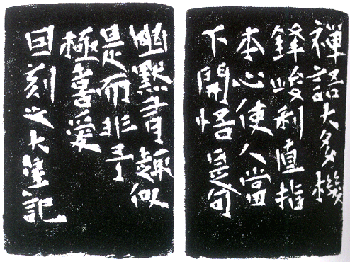 禪語大多機
鋒峻利直指
本心使人當
下開悟句
幽默有趣似
是而非予
極喜愛
因刻之大記